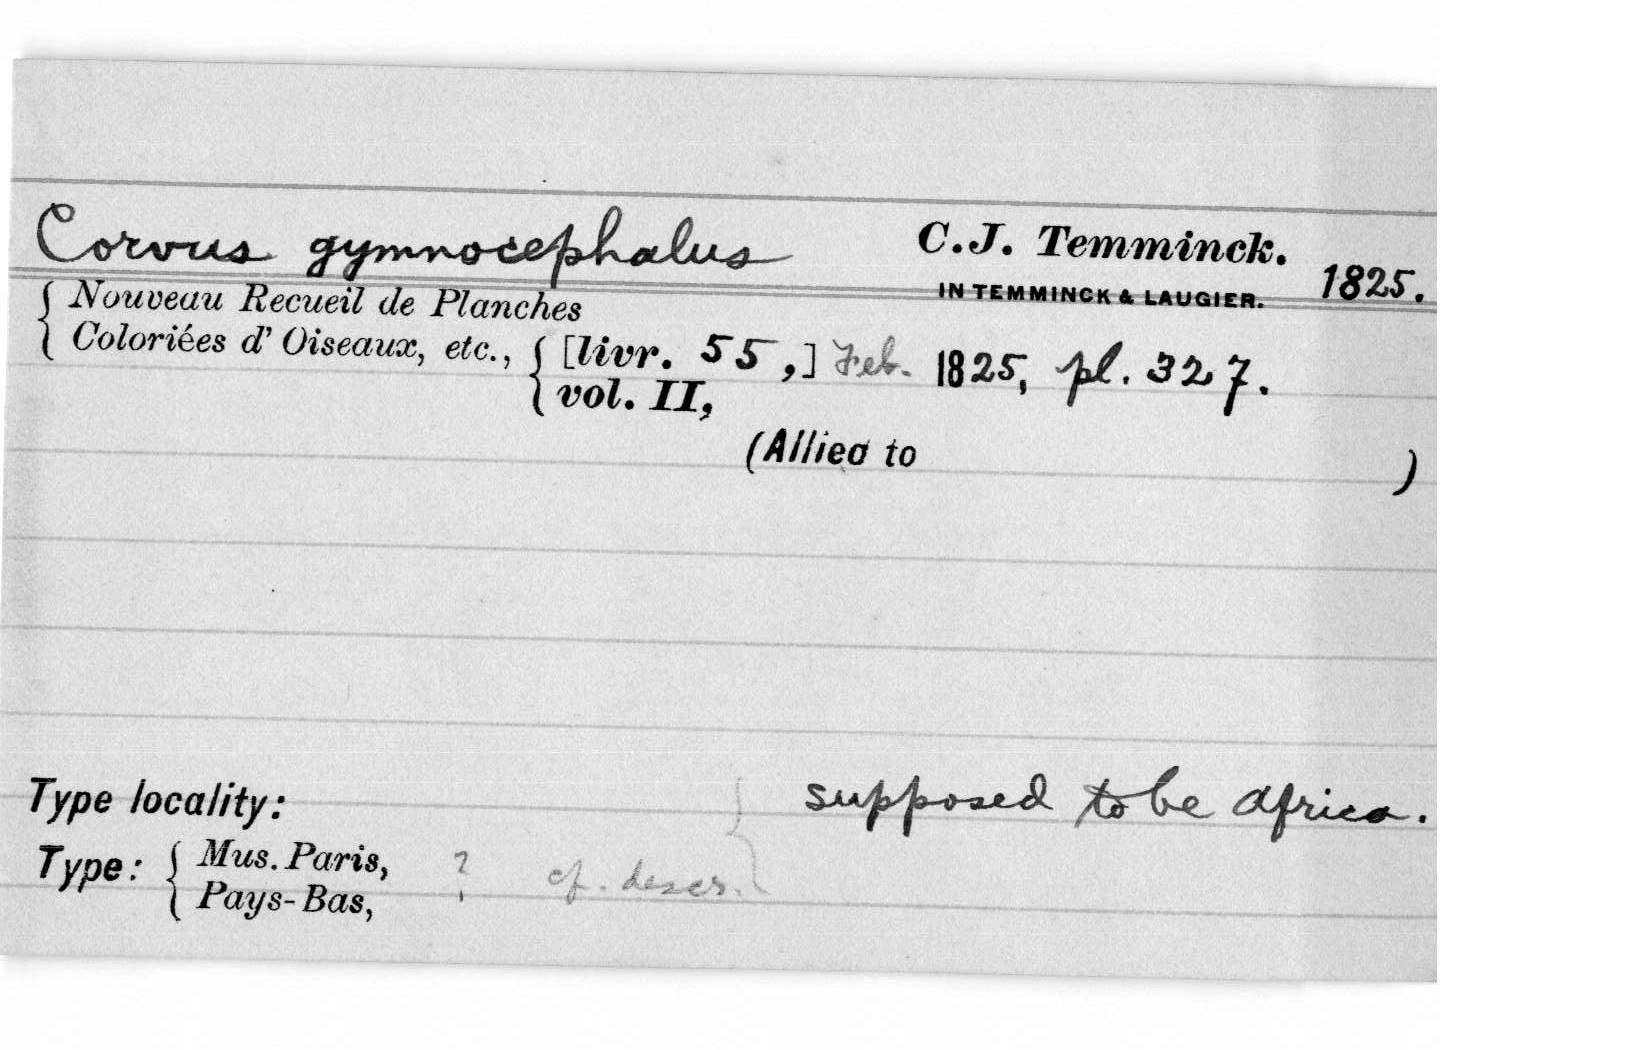 Corvus gymnocephalus C.J. Temminck.
IN TEMMINCK & LAUGIER. 1825.
{ Nouveau Recueil de Planches
Coloriées d' Oiseaux, etc., { [livr. 55,] Feb. 1825, pl. 327.
vol. II,
(Allied to )
Type locality: supposed to be Africa.
Type: { Mus. Paris, ? cf. descr. }
Pays-Bas,